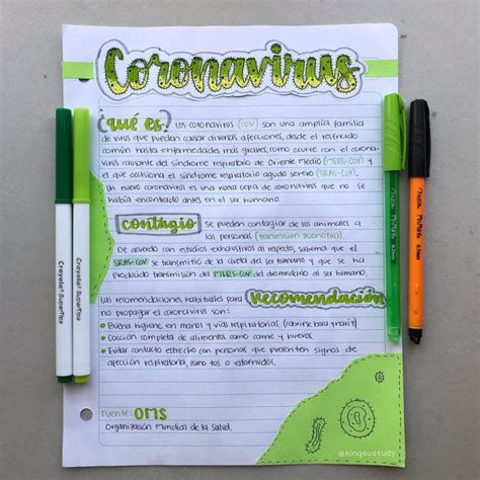 Coronavirus
¿qué es? Los coronavirus (COV) son una amplia familia
de virus que pueden causar diversas afecciones, desde el resfriado
común hasta enfermedades más graves, como ocurre con el corona-
virus causante del síndrome respiratorio de Oriente Medio (MERS-COV) y
el que ocasiona el síndrome respiratorio agudo severo (SRAS-COV).
Un nuevo coronavirus es una nueva cepa de coronavirus que no se
había encontrado antes en el ser humano.
contagio se pueden contagiar de los animales a
las personas (transmisión zoonótica).
De acuerdo con estudios exhaustivos al respecto, sabemos que el
SRAS-COV se transmitió de la civeta al ser humano y que se ha
producido transmisión del MERS-COV del dromedario al ser humano.
Las recomendaciones habituales para recomendación
no propagar el coronavirus son:
Buena higiene en manos y vías respiratorias (cubrirse boca y nariz)
Cocción completa de alimentos como carne y huevos.
Evitar contacto estrecho con personas que presenten signos de
afección respiratoria, como tos o estornudos.
Fuente: OMS
Organización Mundial de la Salud.
@kingsustudy
Crayola SuperTips
Crayola SuperTips